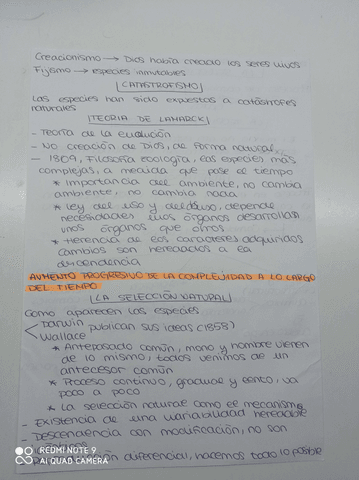 Creacionismo → Dios había creado los seres vivos
Fijismo → especies inmutables
CATASTROFISMO
Las especies han sido expuestas a catástrofes
naturales
TEORIA DE LAMARCK
- Teoría de la evolución
- NO creación de Dios, de forma natural
- 1809, Filosofía zoológica, las especies más
complejas, a medida que pase el tiempo
* Importancia del ambiente, no cambia
ambiente, no cambia nada
* Ley del uso y desuso, depende
necesidades unos órganos desarrollan
unos órganos que otros
* Herencia de los caracteres adquiridos
cambios son heredados a la
descendencia
AUMENTO PROGRESIVO DE LA COMPLEJIDAD A LO LARGO
DEL TIEMPO
LA SELECCIÓN NATURAL
Como aparecen las especies
Darwin publican sus ideas (1858)
Wallace
* Antepasado común, mono y hombre vienen
de lo mismo, todos venimos de un
antecesor común
* Proceso continuo, gradual y lento, va
poco a poco
* La selección natural como el mecanismo
- Existencia de una variabilidad heredable
- Descendencia con modificación, no son
diferencial, hacemos todo lo posible
REDMI NOTE 9
AI QUAD CAMERA